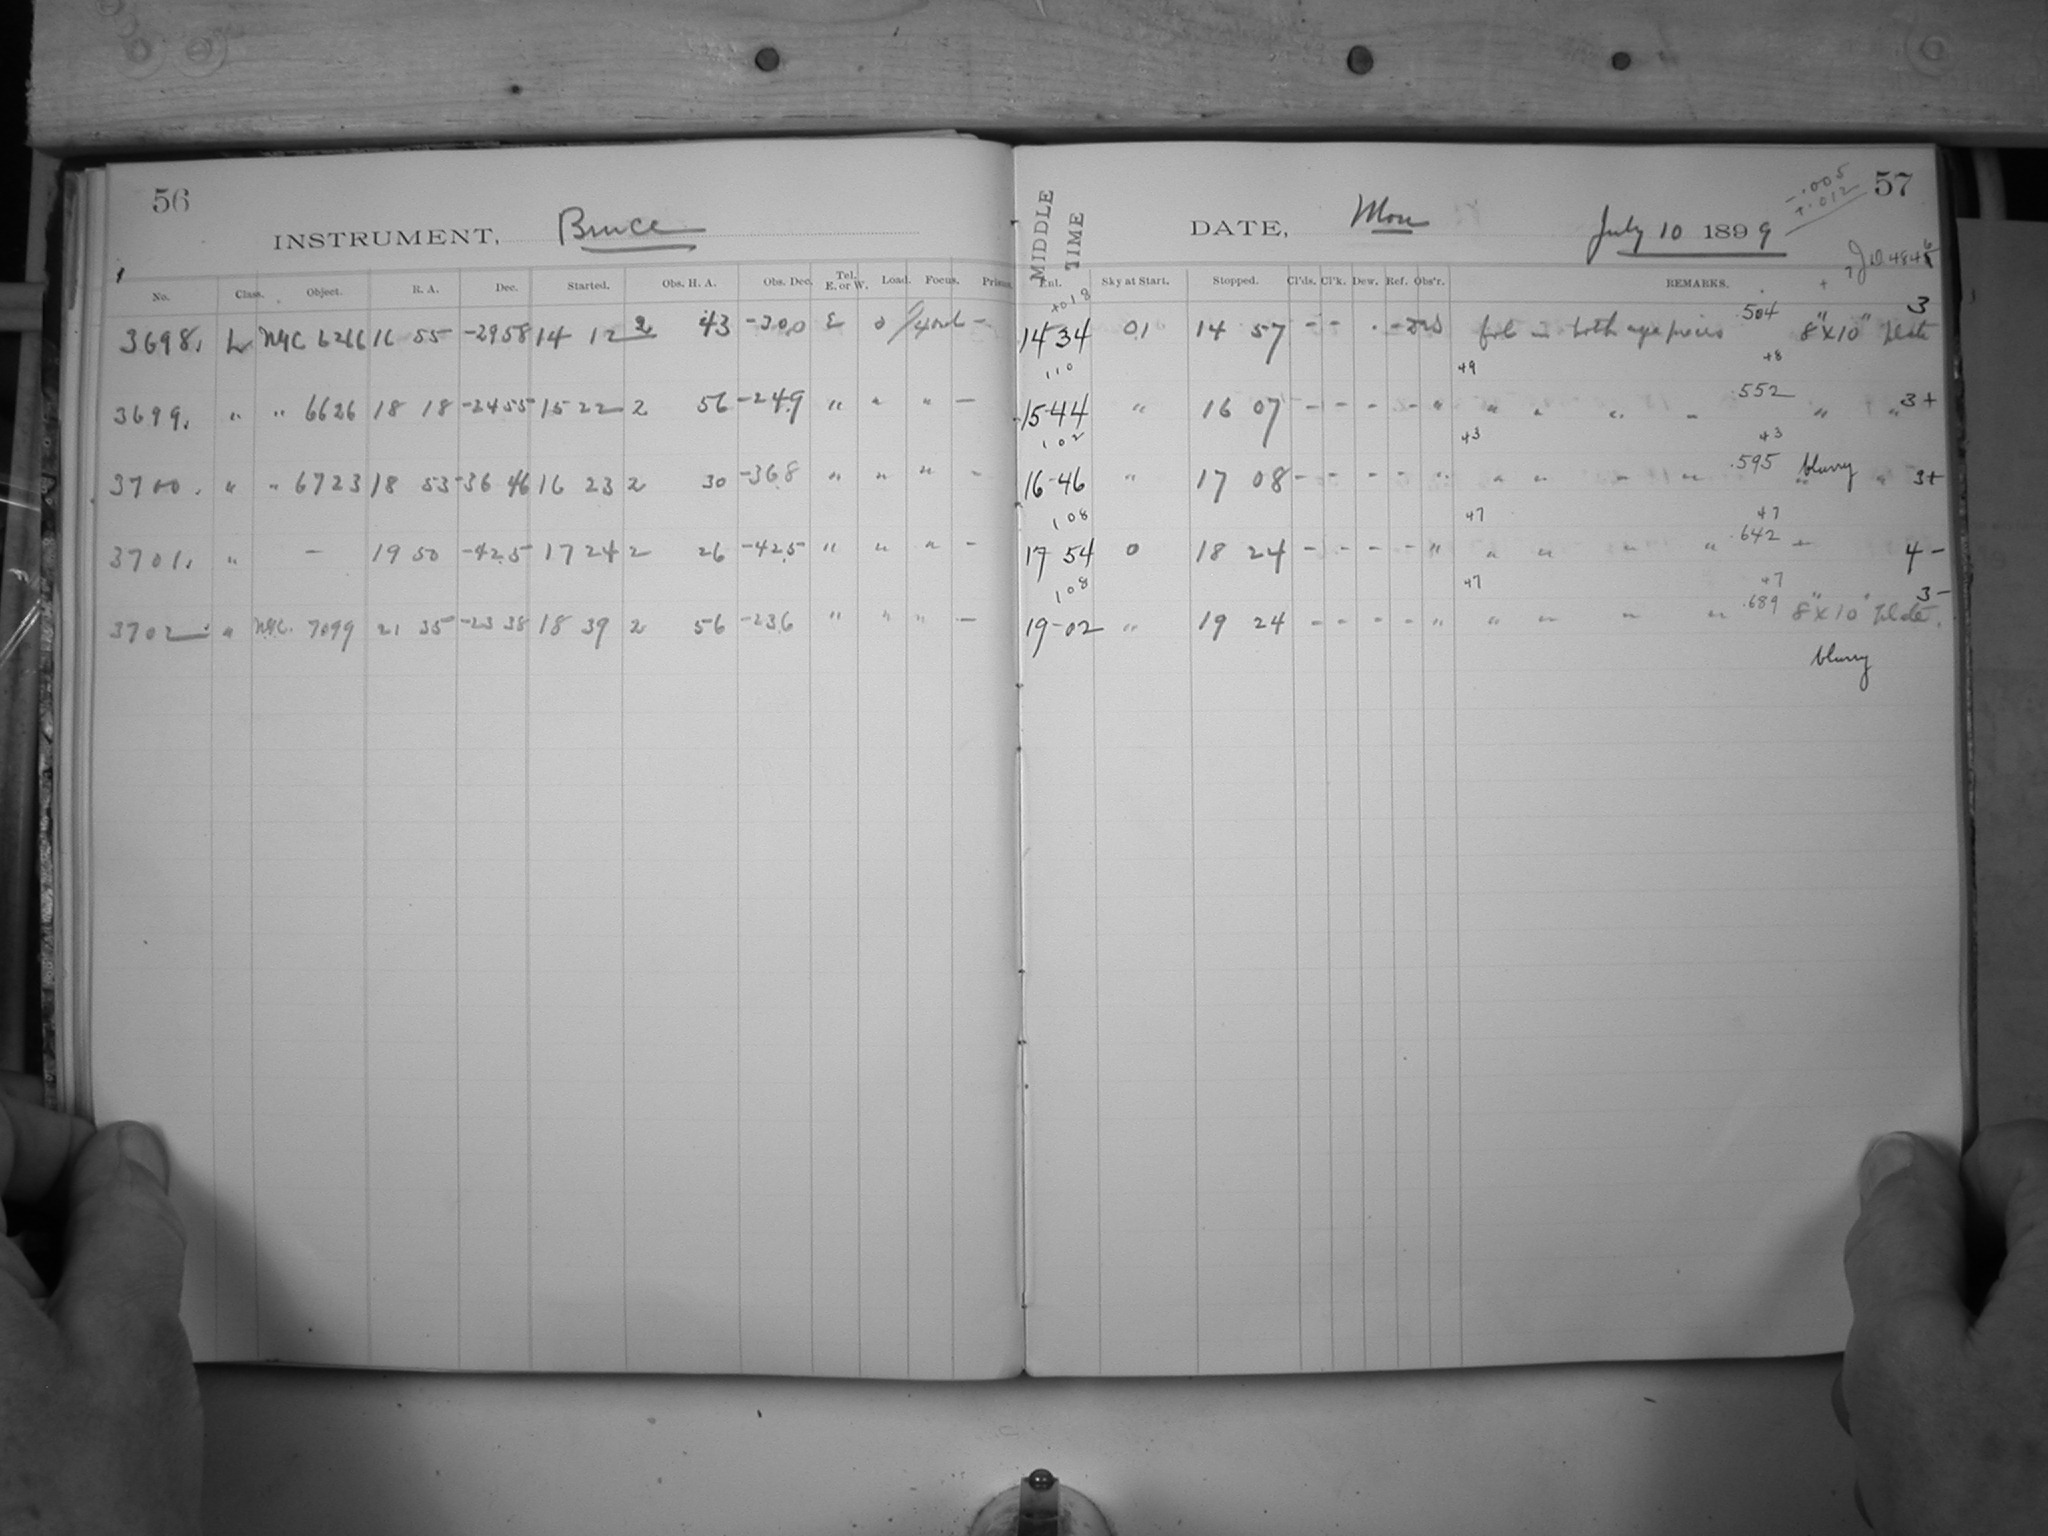 56
INSTRUMENT, Bruce
No. Class. Object. R. A. Dec. Started. Obs. H. A. Obs. Dec. Tel. E. or W. Load. Focus.
3698. L NGC 6266 16 55 -29 58 14 12 2 43 -30.0 E 0 —
3699. " " 6626 18 18 -24 55 15 22 2 56 -24.9 " " " —
3700. " " 6723 18 53 -36 46 16 23 2 30 -36.8 " " " -
3701. " - 19 50 -42.5 17 24 2 26 -42.5 " " " -
3702 " NGC. 7099 21 35 -23 38 18 39 2 56 -23.6 " " " —
57
-.005
+.012
MIDDLE TIME
DATE, Mon July 10 1899
Ent. Sky at Start. Stopped. Cl'ds. Cl'k. Dew. Ref. Obs'r. REMARKS.
+018 .504 3
14 34 01 14 57 - - - - in both eyepieces 8" x 10" plate
110 +9 +8
15-44 " 16 07 - - - - " " " " " .552 " " 3+
102 +3 +3
16-46 " 17 08 - - - - " " " " " .595 blurry " " 3+
108 +7 +7
17 54 0 18 24 - - - - " " " " " .642 4-
108 +7 +7
19-02 " 19 24 - - - - " " " " " .689 8" x 10" plate. 3-
blurry